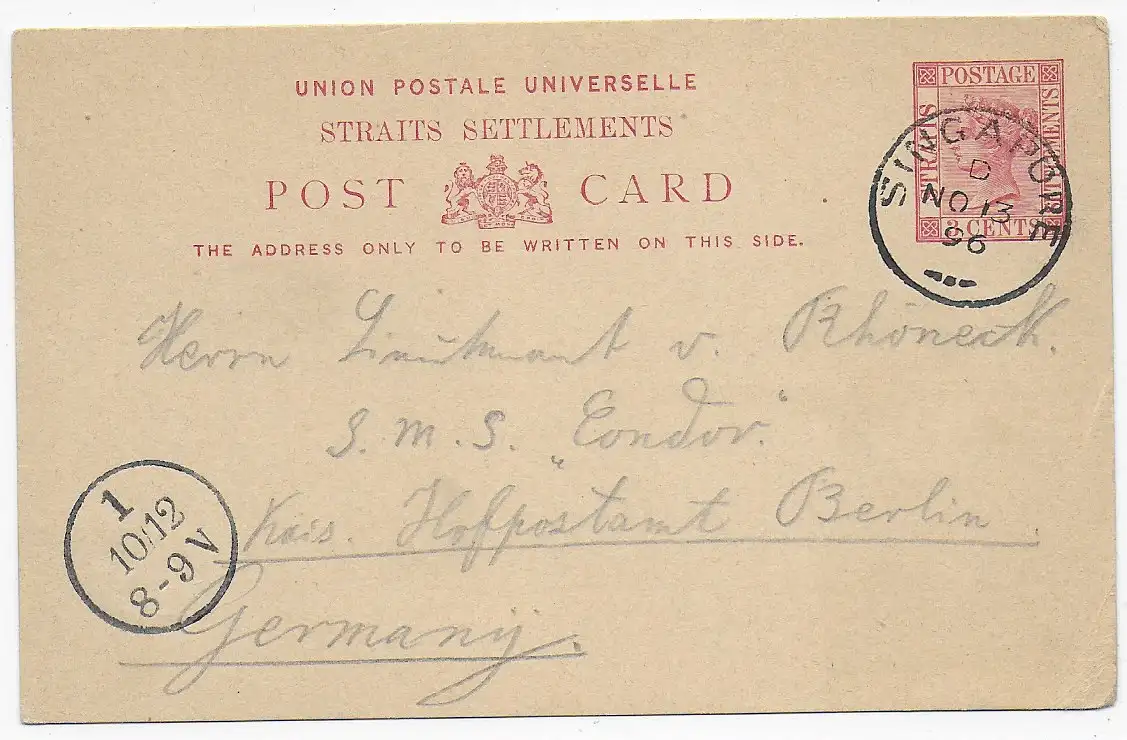 UNION POSTALE UNIVERSELLE
STRAITS SETTLEMENTS
POST CARD
THE ADDRESS ONLY TO BE WRITTEN ON THIS SIDE.
POSTAGE
STRAITS
SETTLEMENTS
3 CENTS
SINGAPORE
D
NO 13
96
Herrn Lieutnant v. Rhöneck.
S. M. S. „Condor“
Kais. Hofpostamt Berlin
Germany.
1
10/12
8-9V